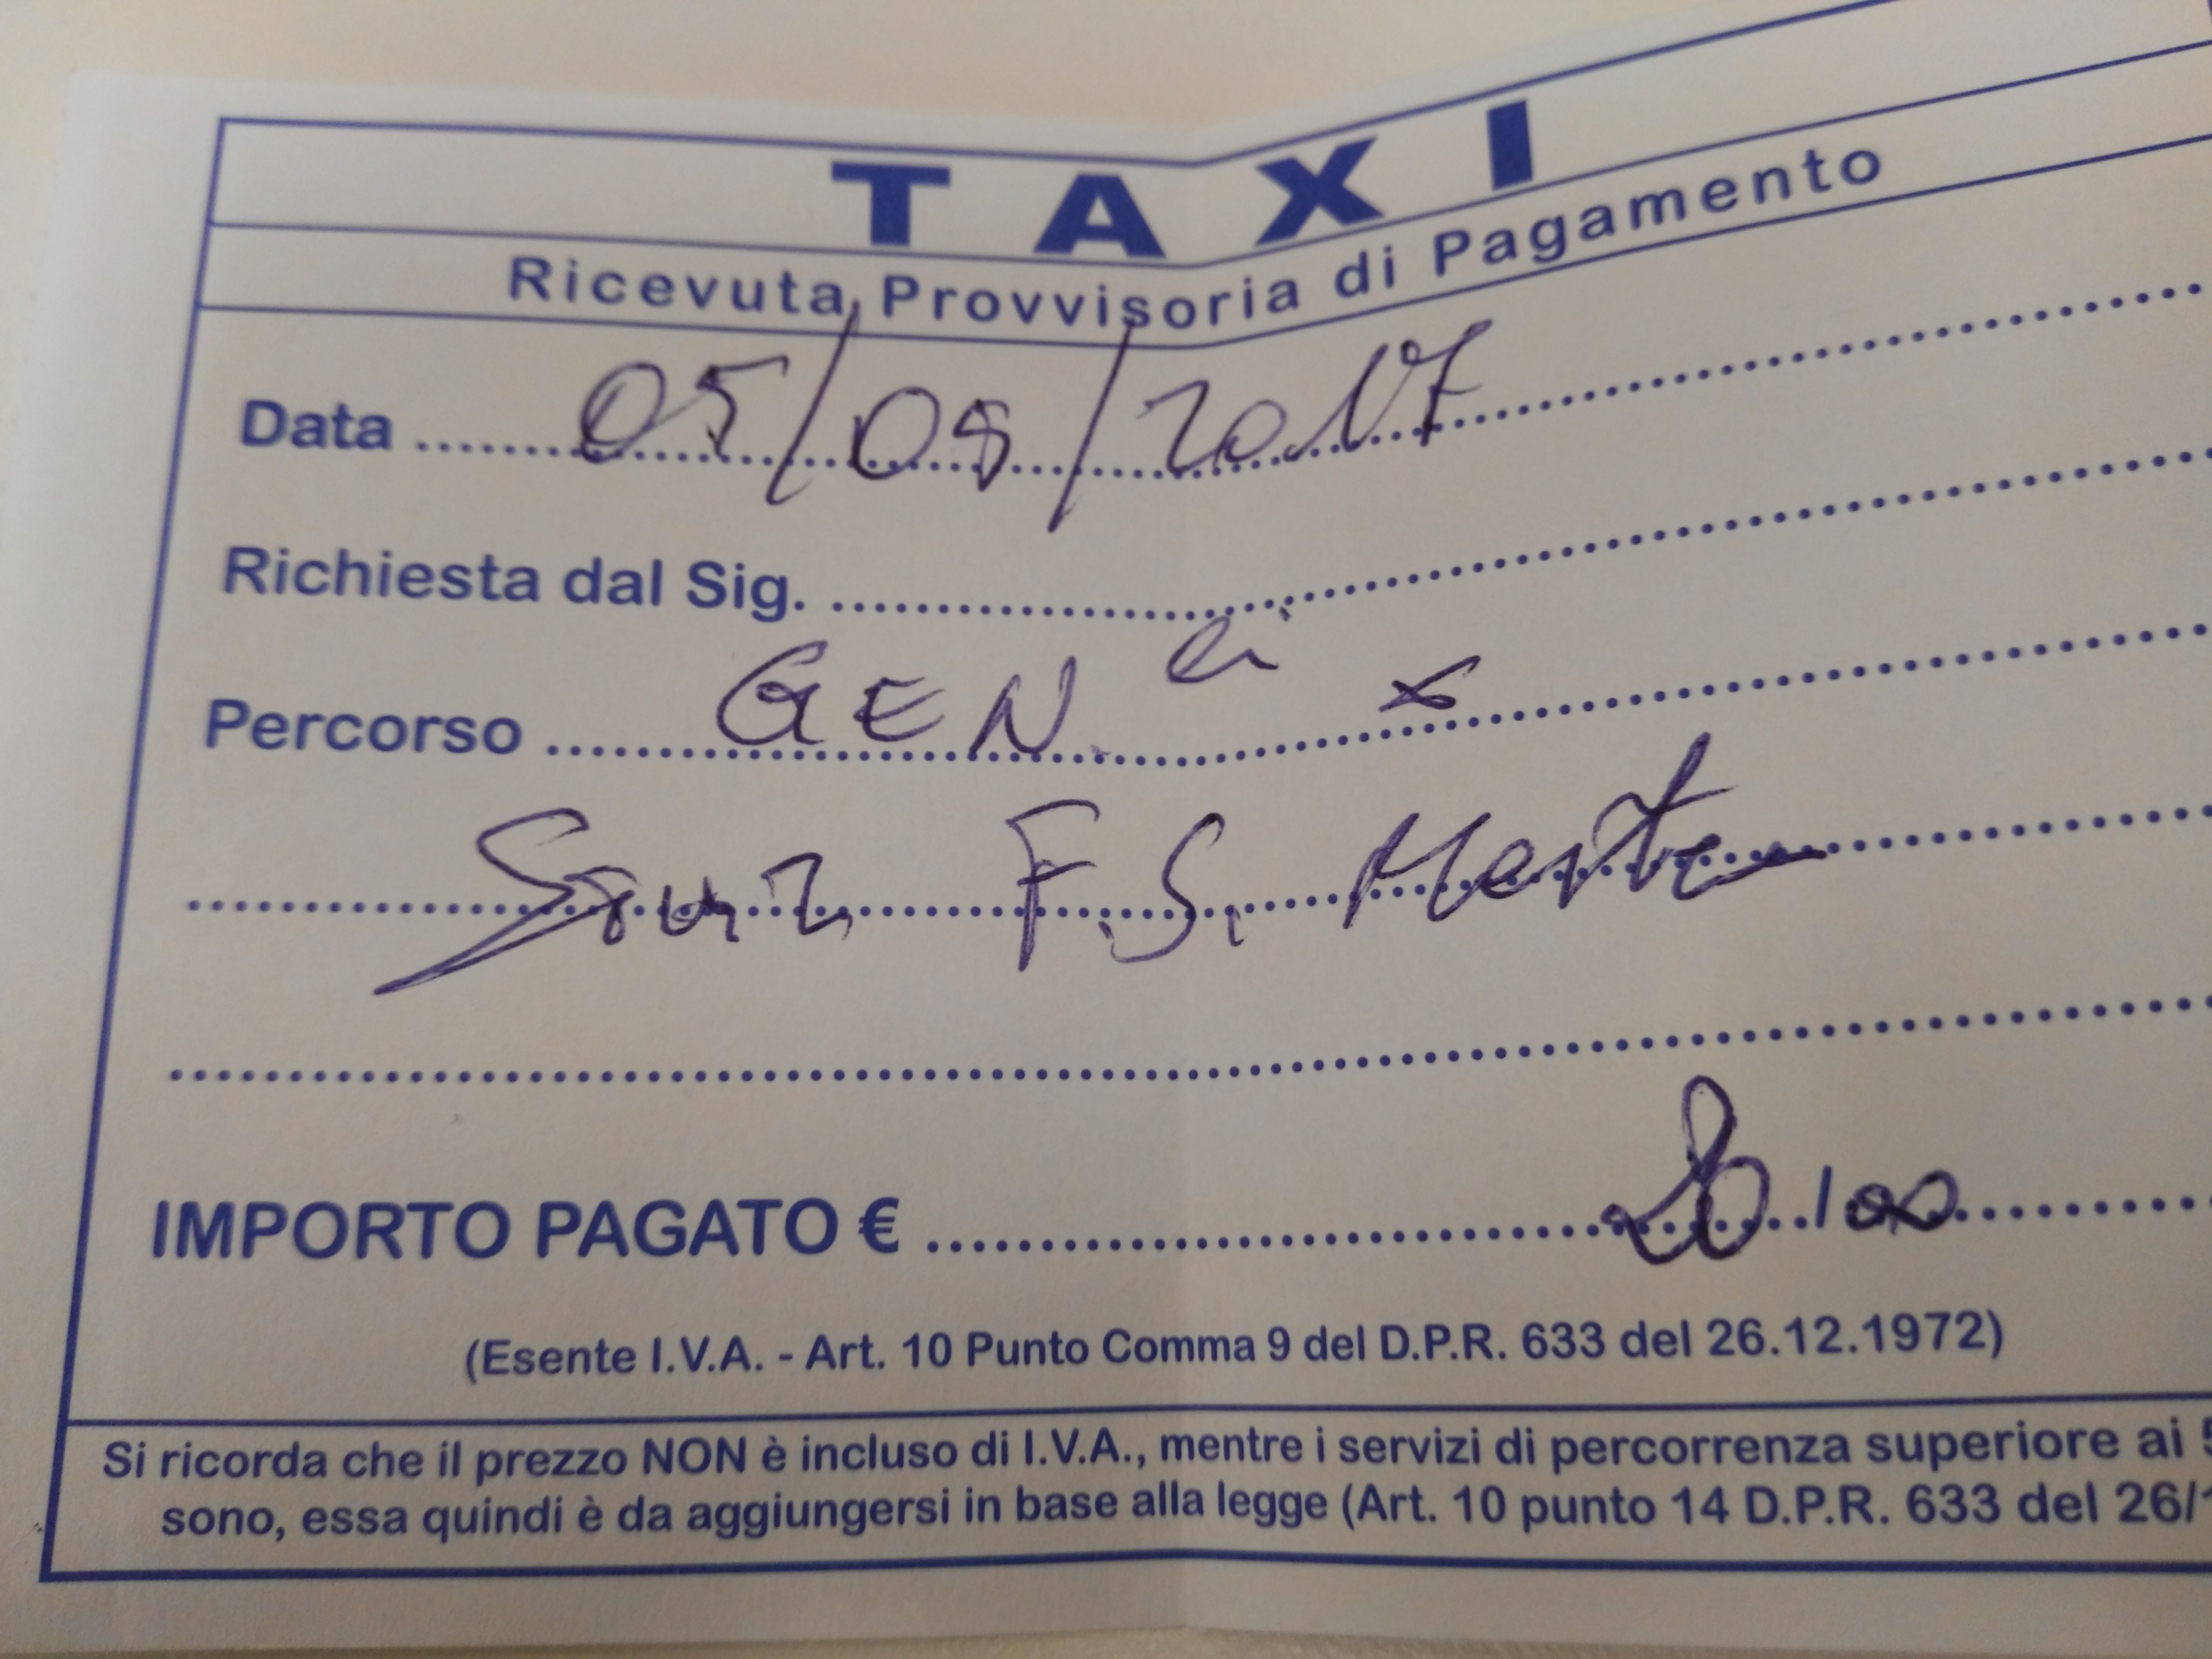 TAXI
Ricevuta Provvisoria di Pagamento
Data 05/08/2017
Richiesta dal Sig.
Percorso GEN. x
F.S. Mestre
IMPORTO PAGATO € 20,00
(Esente I.V.A. - Art. 10 Punto Comma 9 del D.P.R. 633 del 26.12.1972)
Si ricorda che il prezzo NON è incluso di I.V.A., mentre i servizi di percorrenza superiore ai 5
sono, essa quindi è da aggiungersi in base alla legge (Art. 10 punto 14 D.P.R. 633 del 26/1